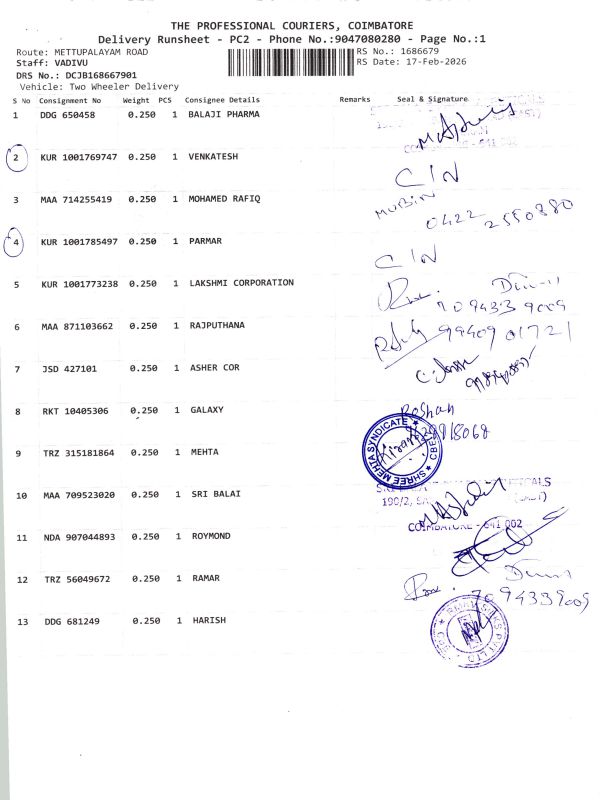 THE PROFESSIONAL COURIERS, COIMBATORE
Delivery Runsheet - PC2 - Phone No.:9047080280 - Page No.:1
Route: METTUPALAYAM ROAD RS No.: 1686679
Staff: VADIVU RS Date: 17-Feb-2026
DRS No.: DCJB168667901
Vehicle: Two Wheeler Delivery
S No Consignment No Weight PCS Consignee Details Remarks Seal & Signature
1 DDG 650458 0.250 1 BALAJI PHARMA
2 KUR 1001769747 0.250 1 VENKATESH C/N
3 MAA 714255419 0.250 1 MOHAMED RAFIQ MUBIN
0422 2550880
4 KUR 1001785497 0.250 1 PARMAR C/N
5 KUR 1001773238 0.250 1 LAKSHMI CORPORATION
7094339009
6 MAA 871103662 0.250 1 RAJPUTHANA 99409 01721
7 JSD 427101 0.250 1 ASHER COR
8 RKT 10405306 0.250 1 GALAXY Roshan
SHREE MEHTA SYNDICATE
9 TRZ 315181864 0.250 1 MEHTA
10 MAA 709523020 0.250 1 SRI BALAI
COIMBATORE - 641 002
11 NDA 907044893 0.250 1 ROYMOND
12 TRZ 56049672 0.250 1 RAMAR
7094339009
13 DDG 681249 0.250 1 HARISH